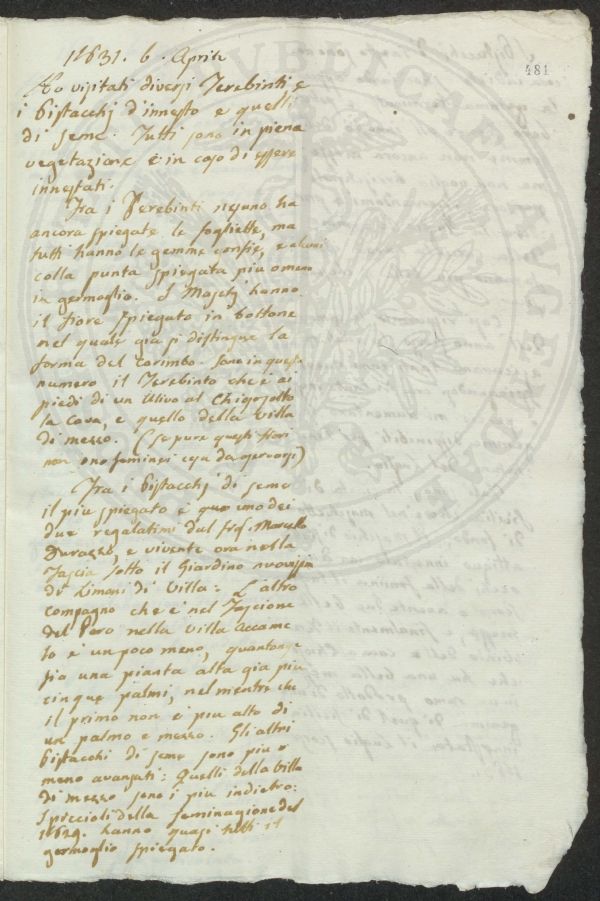 11631. 6. Aprile
481
Ho visitati diversi Terebinti, e
i Pistacchj d'innesto e quelli
di seme. Tutti sono in piena
vegetazione e in caso di essere
innestati.
Fra i Terebinti nessuno ha
ancora spiegate le fogliette, ma
tutti hanno le gemme gonfie, e alcuni
colla punta spiegata più o meno
in germoglio. I Maschj hanno
il fiore spiegato in bottone
nel quale già si distingue la
forma del corimbo. Sono in questo
numero il Terebinto che è ai
piedi di un Ulivo al
la Cava, e quello della Villa
di mezzo. (se pure questi fiori
non sono feminei)
Fra i Pistacchj di seme
il più spiegato è uno dei
due regalatimi dal Sig. Marcello
Durazzo, e vivente ora nella
Fascia sotto il Giardino
de Limoni di Villa: L'altro
compagno che è nel Fascione
del Pero nella Villa
lo è un poco meno, quantunque
sia una pianta alta già più
cinque palmi, nel mentre che
il primo non è più alto di
un palmo e mezzo. Gli altri
Pistacchi di seme sono più o
meno avanzati: Quelli della Villa
di mezzo sono i più indietro:
I piccioli della seminagione del
11629. hanno quasi tutti il
germoglio spiegato.